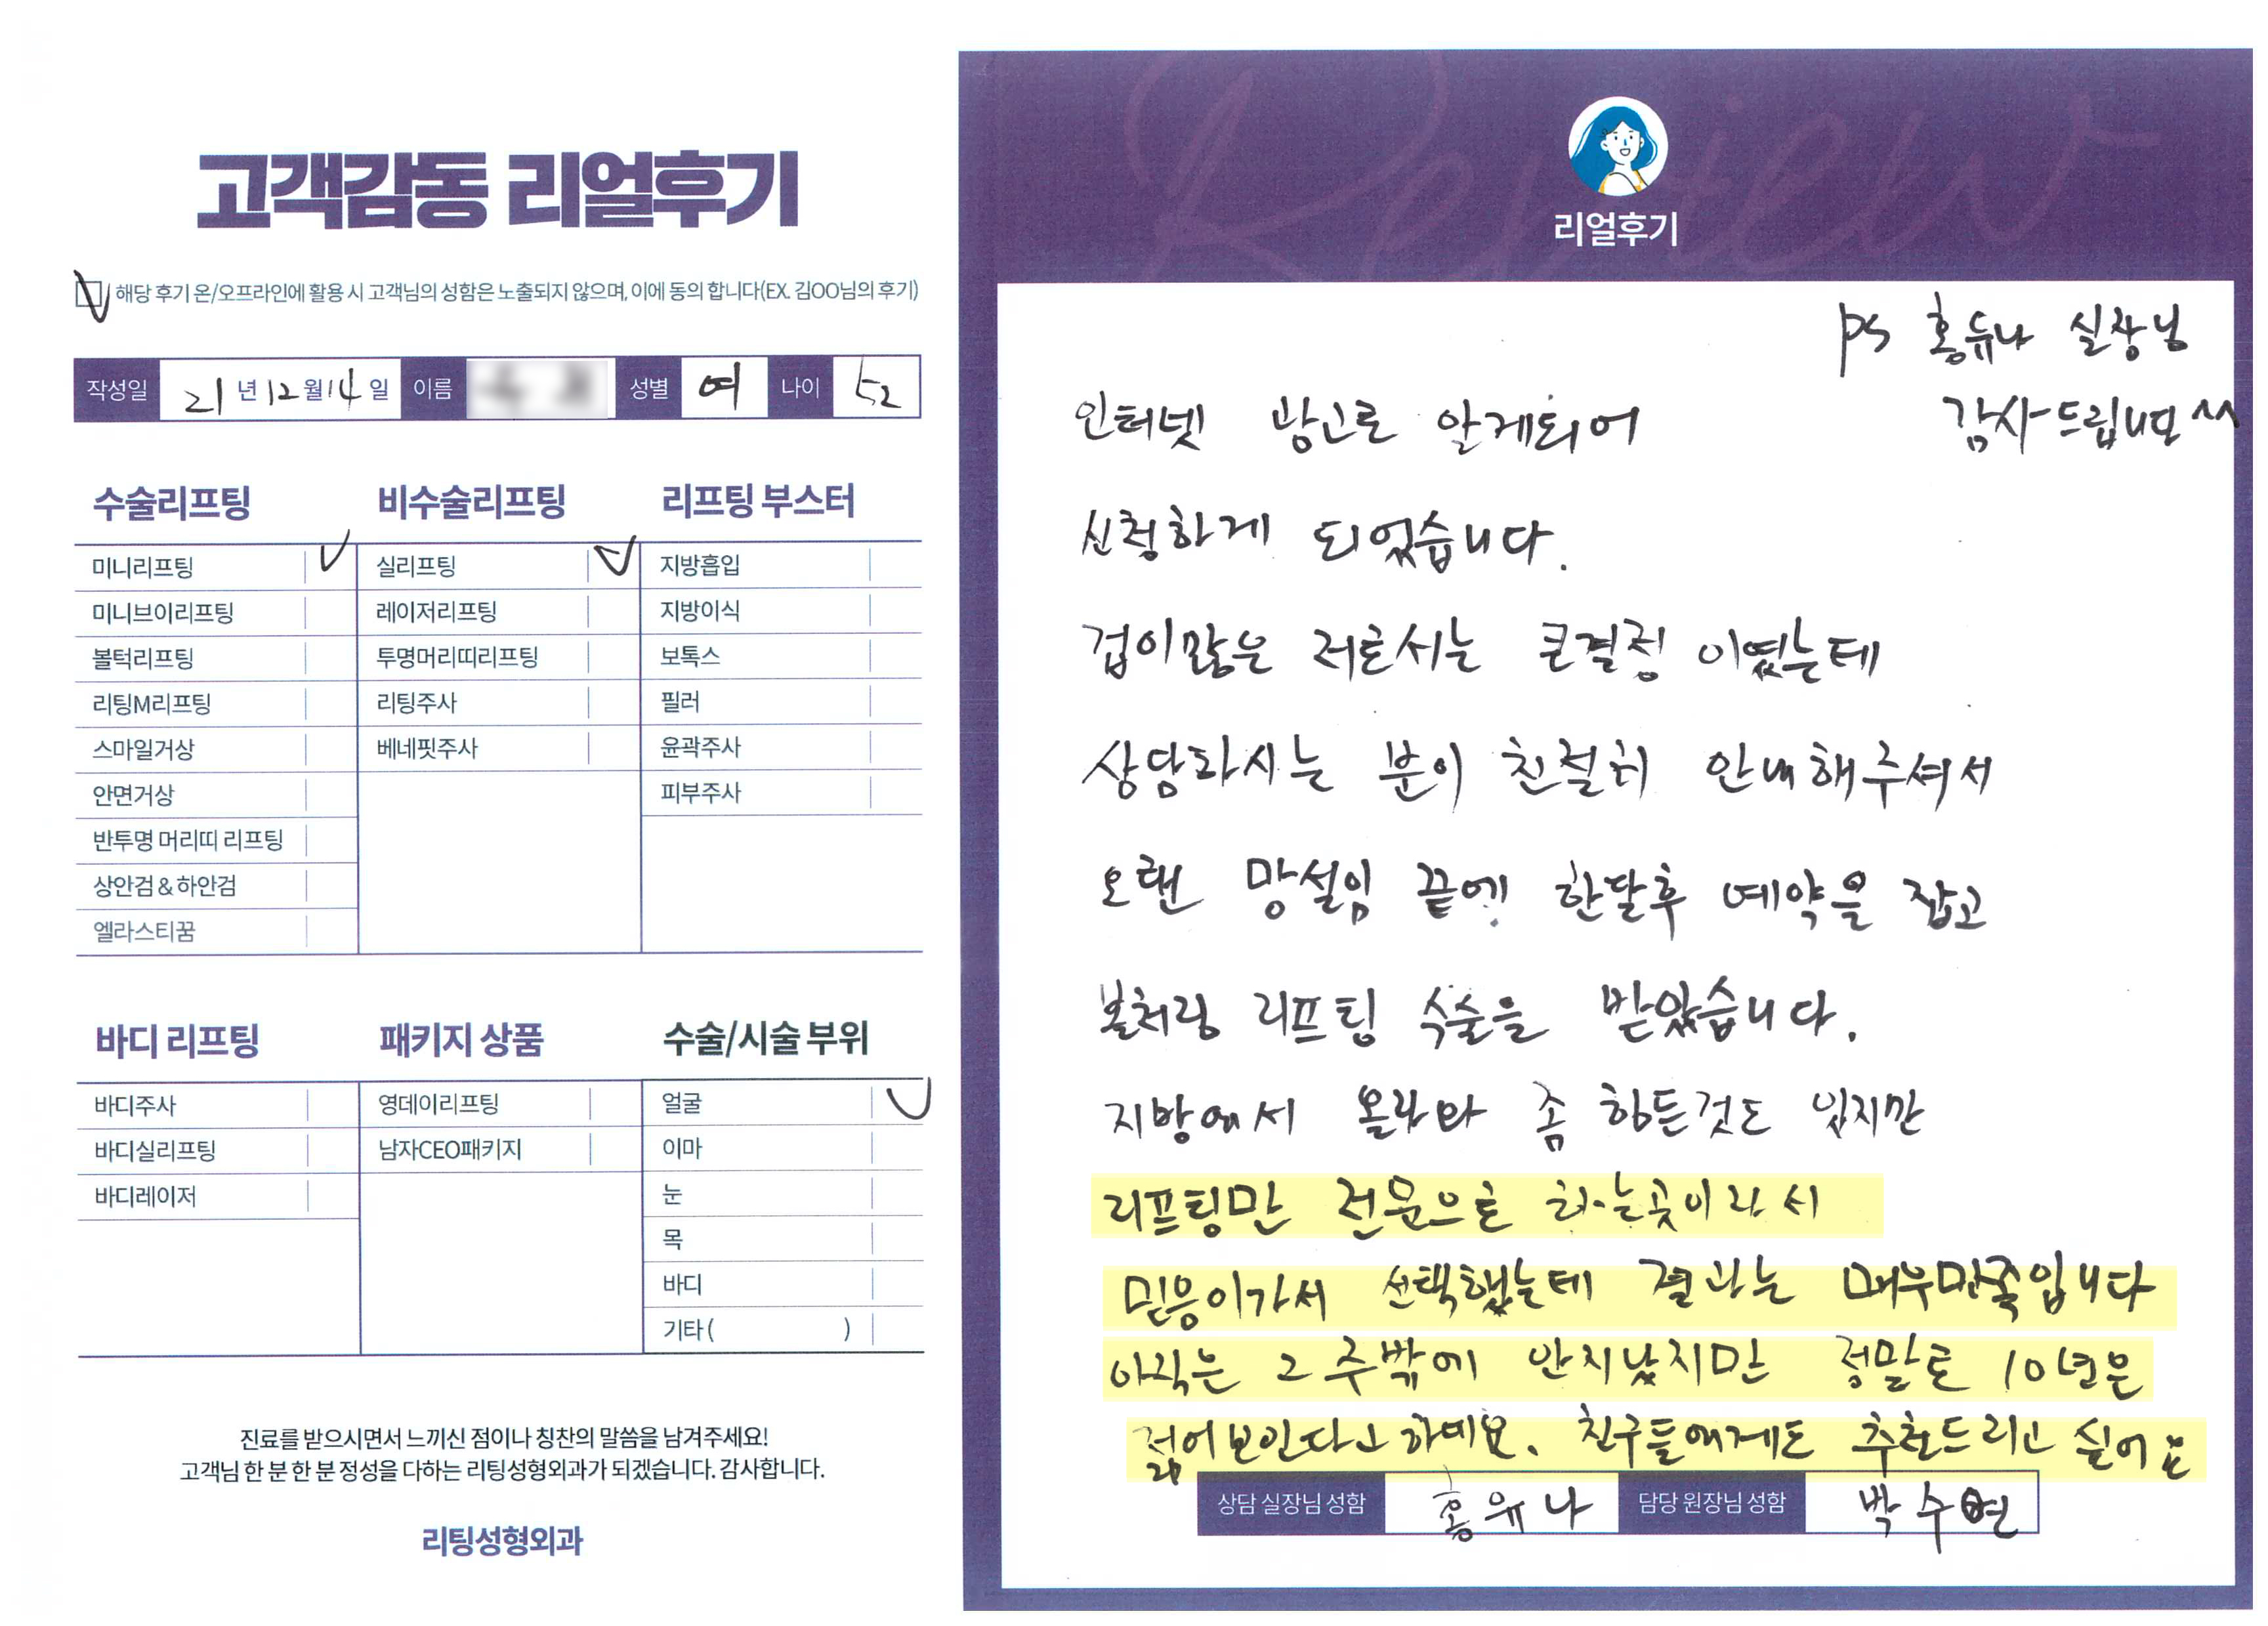 고객감동 리얼후기
해당 후기 온/오프라인에 활용 시 고객님의 성함은 노출되지 않으며, 이에 동의 합니다(EX. 김OO님의 후기)
작성일 21년 12월 14일 이름 성별 여 나이 52
수술리프팅
미니리프팅
미니브이리프팅
볼턱리프팅
리팅M리프팅
스마일거상
안면거상
반투명 머리띠 리프팅
상안검 & 하안검
엘라스티꿈
비수술리프팅
실리프팅
레이저리프팅
투명머리띠리프팅
리팅주사
베네핏주사
리프팅 부스터
지방흡입
지방이식
보톡스
필러
윤곽주사
피부주사
바디 리프팅
바디주사
바디실리프팅
바디레이저
패키지 상품
영데이리프팅
남자CEO패키지
수술/시술 부위
얼굴
이마
눈
목
바디
기타 ( )
진료를 받으시면서 느끼신 점이나 칭찬의 말씀을 남겨주세요!
고객님 한 분 한 분 정성을 다하는 리팅성형외과가 되겠습니다. 감사합니다.
리팅성형외과
Review
리얼후기
ps 홍유나 실장님
감사드립니다 ^^
인터넷 광고로 알게되어
신청하게 되었습니다.
겁이많은 저로서는 큰결정 이였는데
상담하시는 분이 친절히 안내해주셔서
오랜 망설임 끝에 한달후 예약을 잡고
볼처짐 리프팅 수술을 받았습니다.
지방에서 올라와 좀 힘든것도 있지만
리프팅만 전문으로 하는곳이라서
믿음이가서 선택했는데 결과는 매우만족입니다
아직은 2주밖에 안지났지만 정말로 10년은
젊어보인다고 하네요. 친구들에게도 추천드리고 싶어요
상담 실장님 성함 홍유나 담당 원장님 성함 박수연